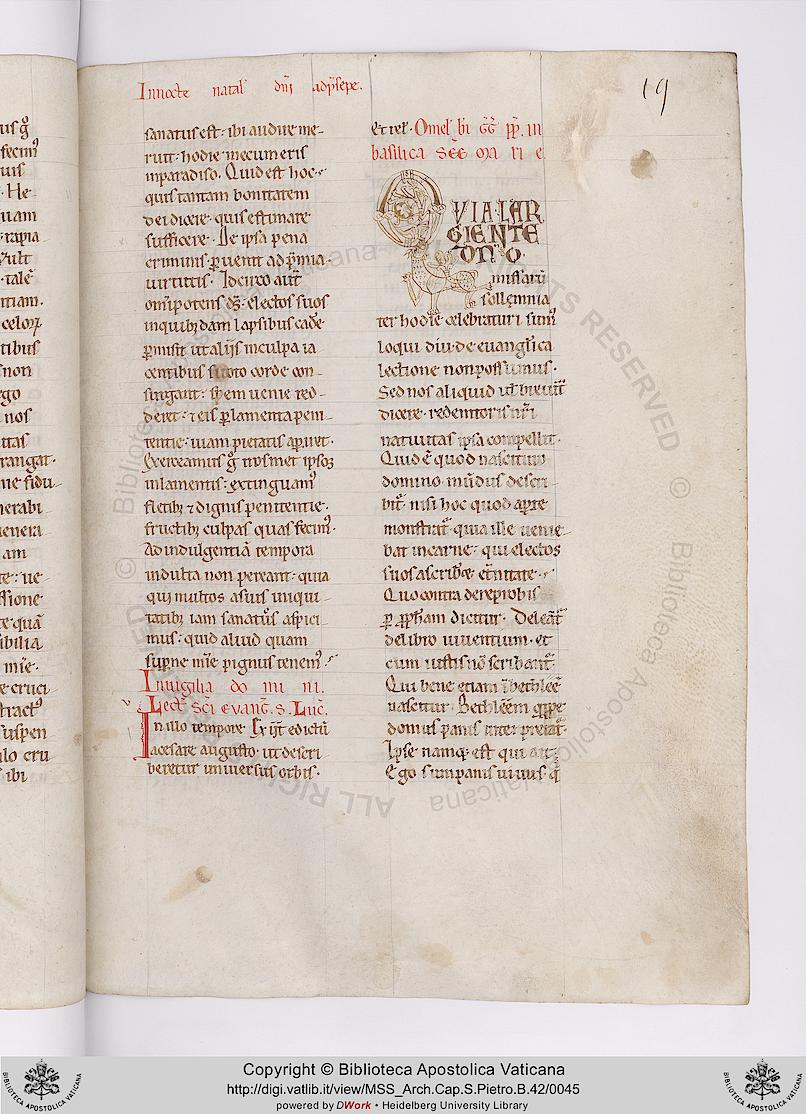 In nocte natal dñi ad p̃sepe.
19
sanatus est· ibi audire me-
ruit· hodie mecum eris
in paradiso. Quid est hoc·
quis tantam bonitatem
dei dicere· quis estimare
sufficere· De ipsa pena
criminis p̱uenit ad p̃mia·
uirtutis. Idcirco aut̃
omp̃otens ds̃· electos suos
in quibꝰdam lapsibus cade᷒
p̱misit ut alijs in culpa ia
centibus si toto corde con-
surgant· sp̃em uenie red-
deret· ⁊ eis p̱ lamenta peni-
tentie· uiam pietatis ap̱iret·
Exerceamus gͦ nosmet ipsos
in lamentis· extinguamꝰ
fletibꝫ ⁊ dignis penitentie·
fructibꝫ culpas quas fecimꝰ·
Ad indulgentiã tempora
indulta non pereant· quia
qui multos a suis iniqui-
tatibꝫ iam sanatos aspici-
mus· quid aliud quam
sup̱ne mĩe pignus tenemꝰ·
In uigilia do mi ni.
Lect̃ sc̃i euang̃. s. Luc̃.
In illo tempore· Exijt edictũ
a cesare augusto· ut descri-
beretur uniuersus orbis·
Et rel̃· Omel̃ bĩ GG̃ pp̃. in
basilica SCE MA RI E
QVIA LAR
GIENTE
DNO·
missarũ
sollẽmnia
ter hodie celebraturi sumꝰ
loqui diu· de euang̃lica
lectione non possumus·
Sed nos aliquid uł breuit̃
dicere· redemptoris nr̃i
natiuitas ipsa compellit·
Quid ẽ quod nascituro
domino· mũdus descri-
bit̃· nisi hoc quod ap̱te
monstrat̃· quia ille uenie-
bat in carne· qui electos
suos ascriberet et̃nitate·
Quo contra de reprobis
p̱ pp̃ham dicitur· Deleãt̃
de libro uiuentium· et
cum iustis nõ scribant̃·
Qui bene etiam ĩ bethleẽ
nascitur· Bethleẽm qp̃pe
domus panis inter pretat̃·
Ipse namqꝫ est qui ait·
Ego sum panis uiuus· q̃
Copyright © Biblioteca Apostolica Vaticana
http://digi.vatlib.it/view/MSS_Arch.Cap.S.Pietro.B.42/0045
powered by DWork • Heidelberg University Library